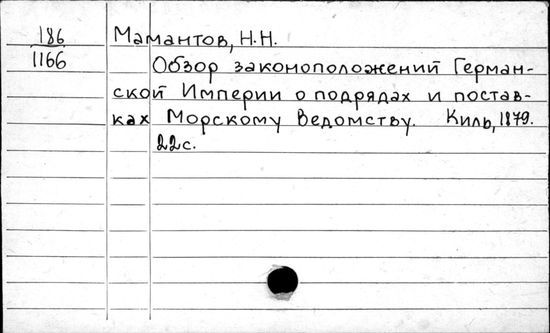 186 Мамантов, Н.Н.
1166 Обзор законоположений Герман-
ской Империи о подрядах и постав-
ках Морскому Ведомству. Киль, 1879.
22с.